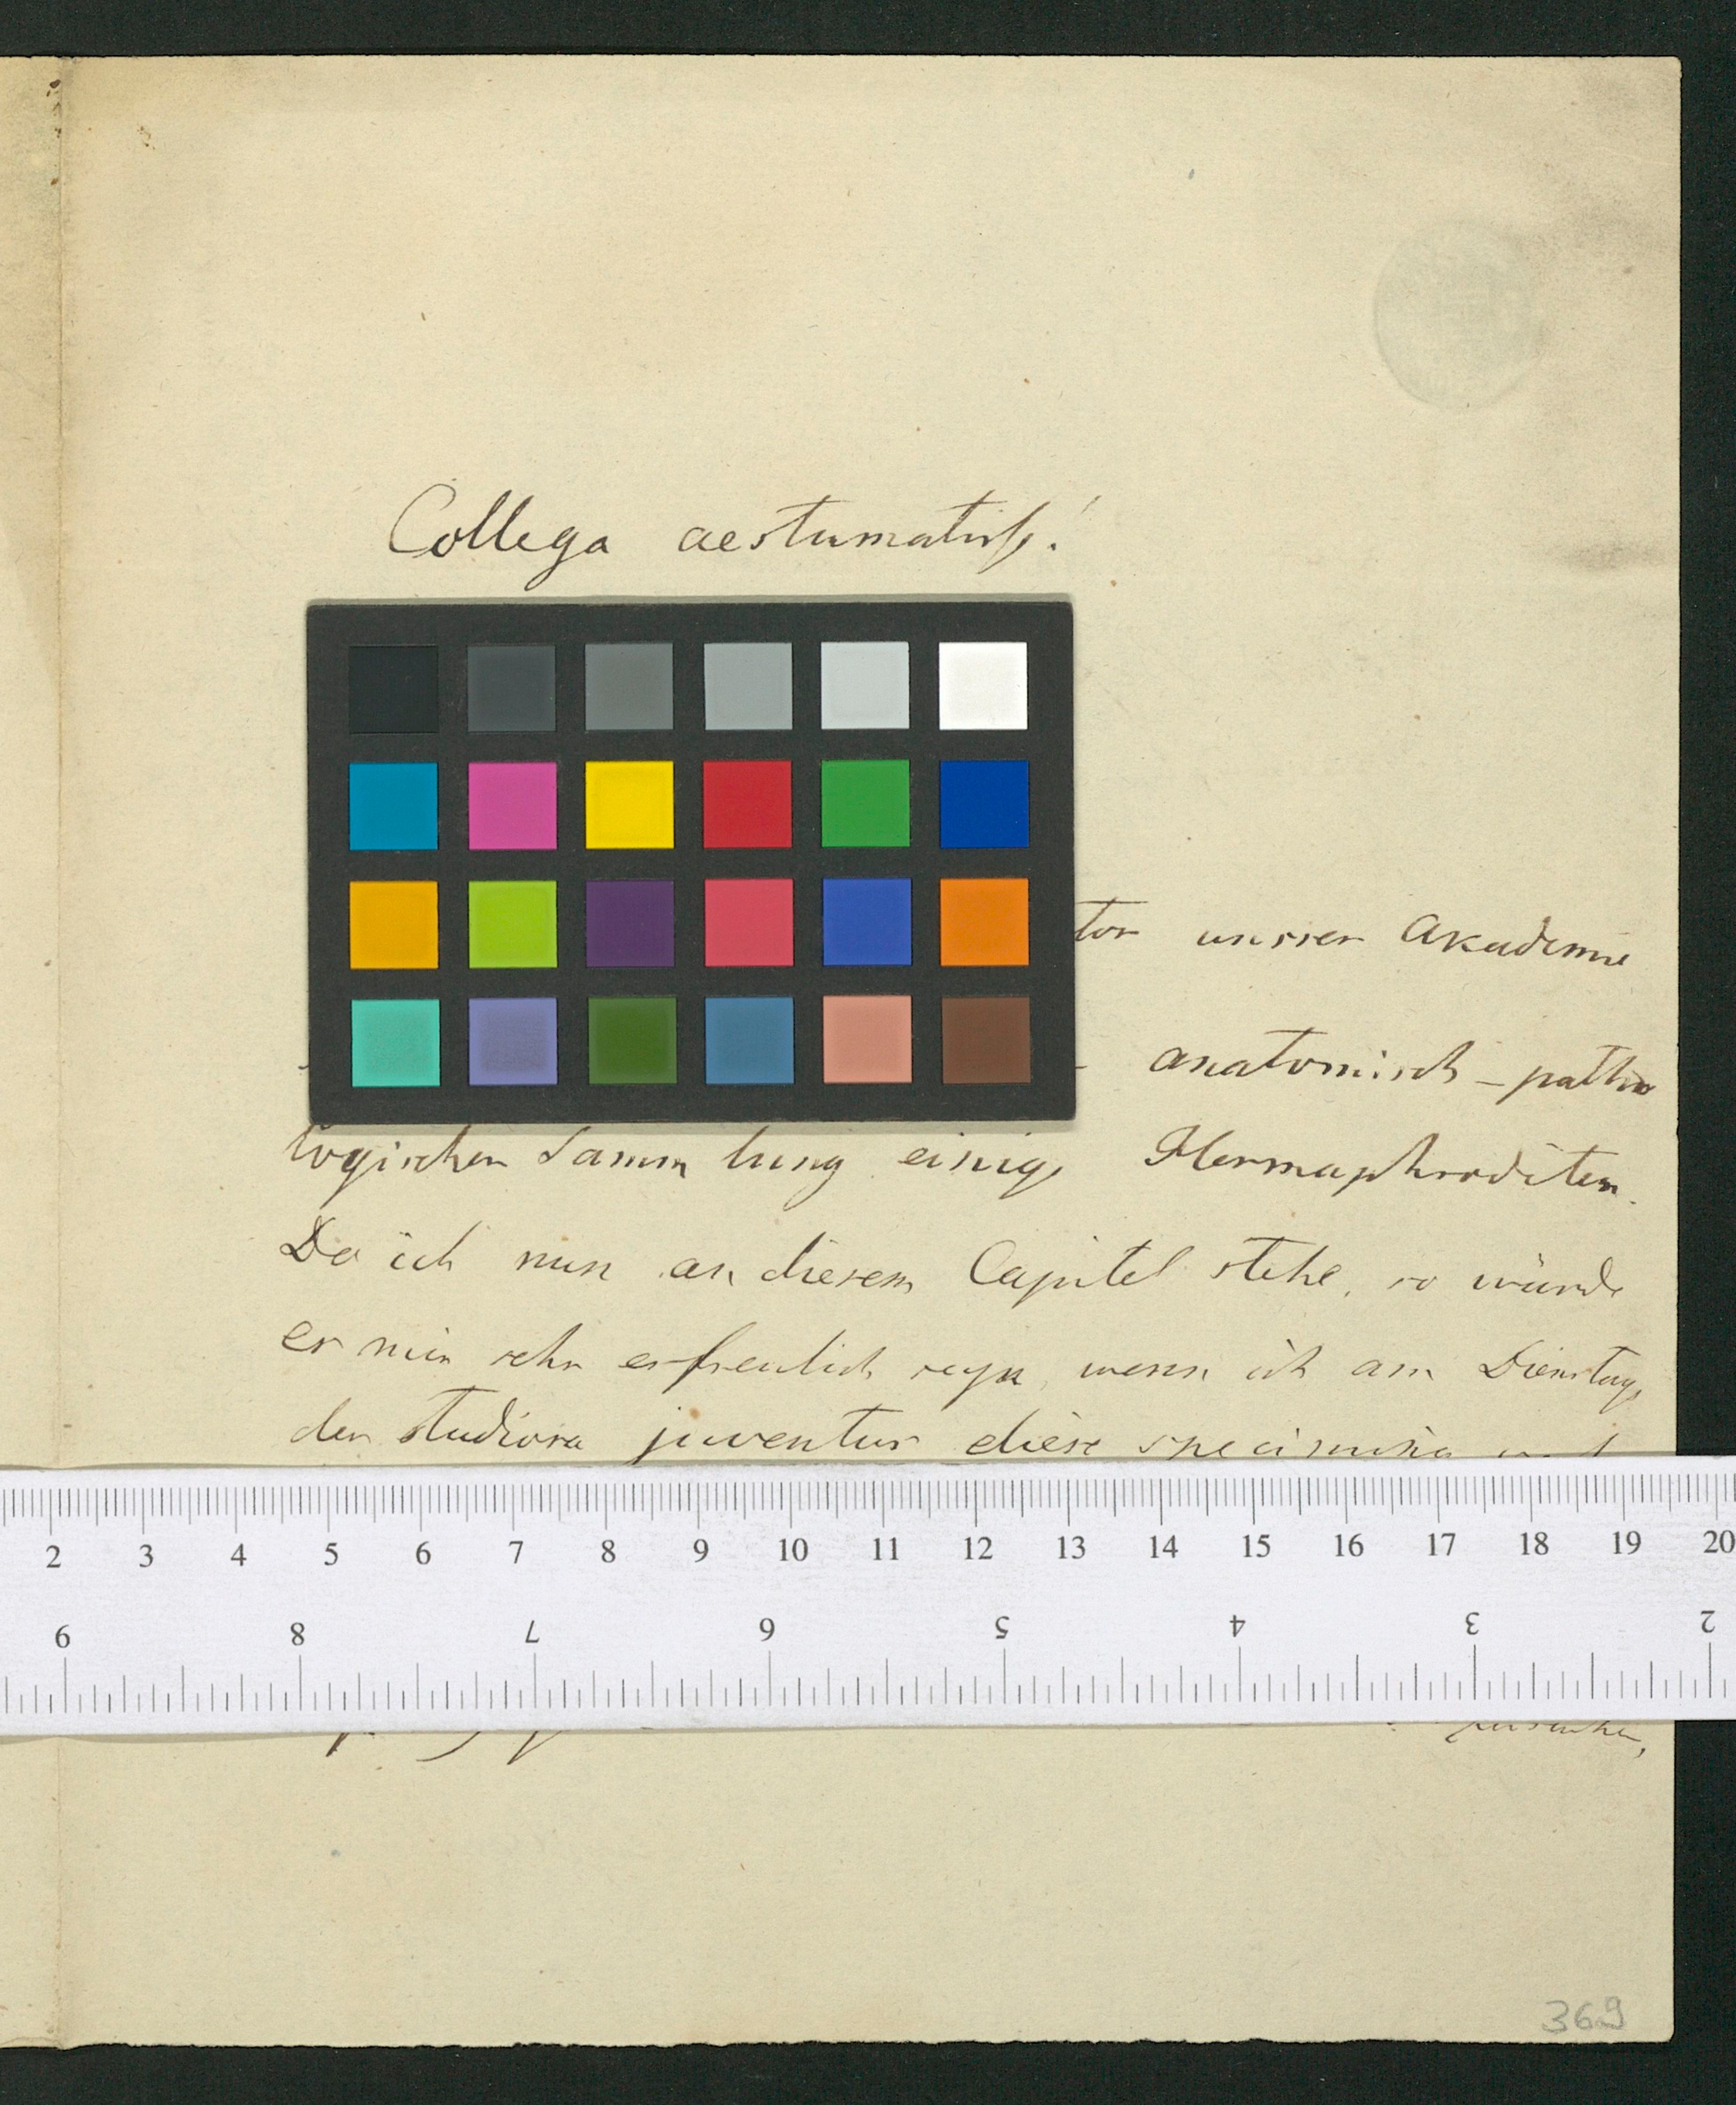 Collega aestumatiss!
tor unsrer Akademie
anatomisch-patho
logischen Sammlung einige Hermaphroditen.
Da ich nun an diesem Capitel stehe, so würde
es mir sehr erfreulich seyn, wenn ich am Dienstag
der studiosa juventus diese specimina
2 3 4 5 6 7 8 9 10 11 12 13 14 15 16 17 18 19 20
9 8 7 6 5 4 3 2
369